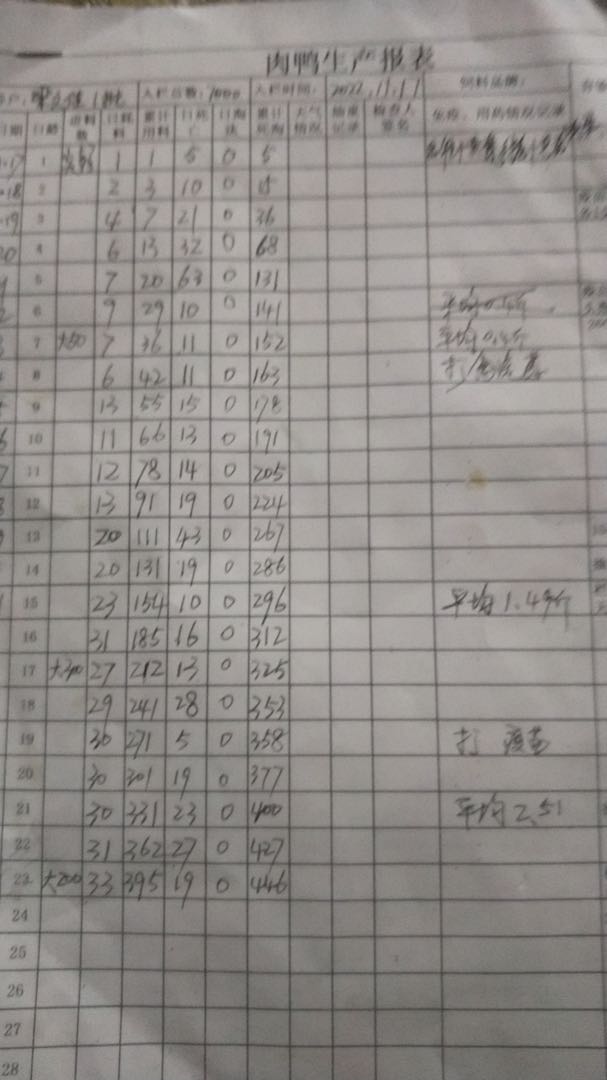 肉鸭生产报表
入栏总数：7000 入栏时间：2022.11.17
日龄 日耗料 累计用料 日死亡 日淘汰 累计死淘 天气情况
1 1 1 5 0 5
18 2 2 3 10 0 15
19 3 4 7 21 0 36
20 4 6 13 32 0 68
5 7 20 63 0 131
6 9 29 10 0 141
7 大50 7 36 11 0 152 平均0.4斤
8 6 42 11 0 163
9 13 55 15 0 178
10 11 66 13 0 191
11 12 78 14 0 205
12 13 91 19 0 224
13 20 111 43 0 267
14 20 131 19 0 286
15 23 154 10 0 296 平均1.4斤
16 31 185 16 0 312
17 大300 27 212 13 0 325
18 29 241 28 0 353
19 30 271 5 0 358 打
20 30 301 19 0 377
21 30 331 23 0 400 平均2.51
22 31 362 27 0 427
23 大200 33 395 19 0 446
24
25
26
27
28